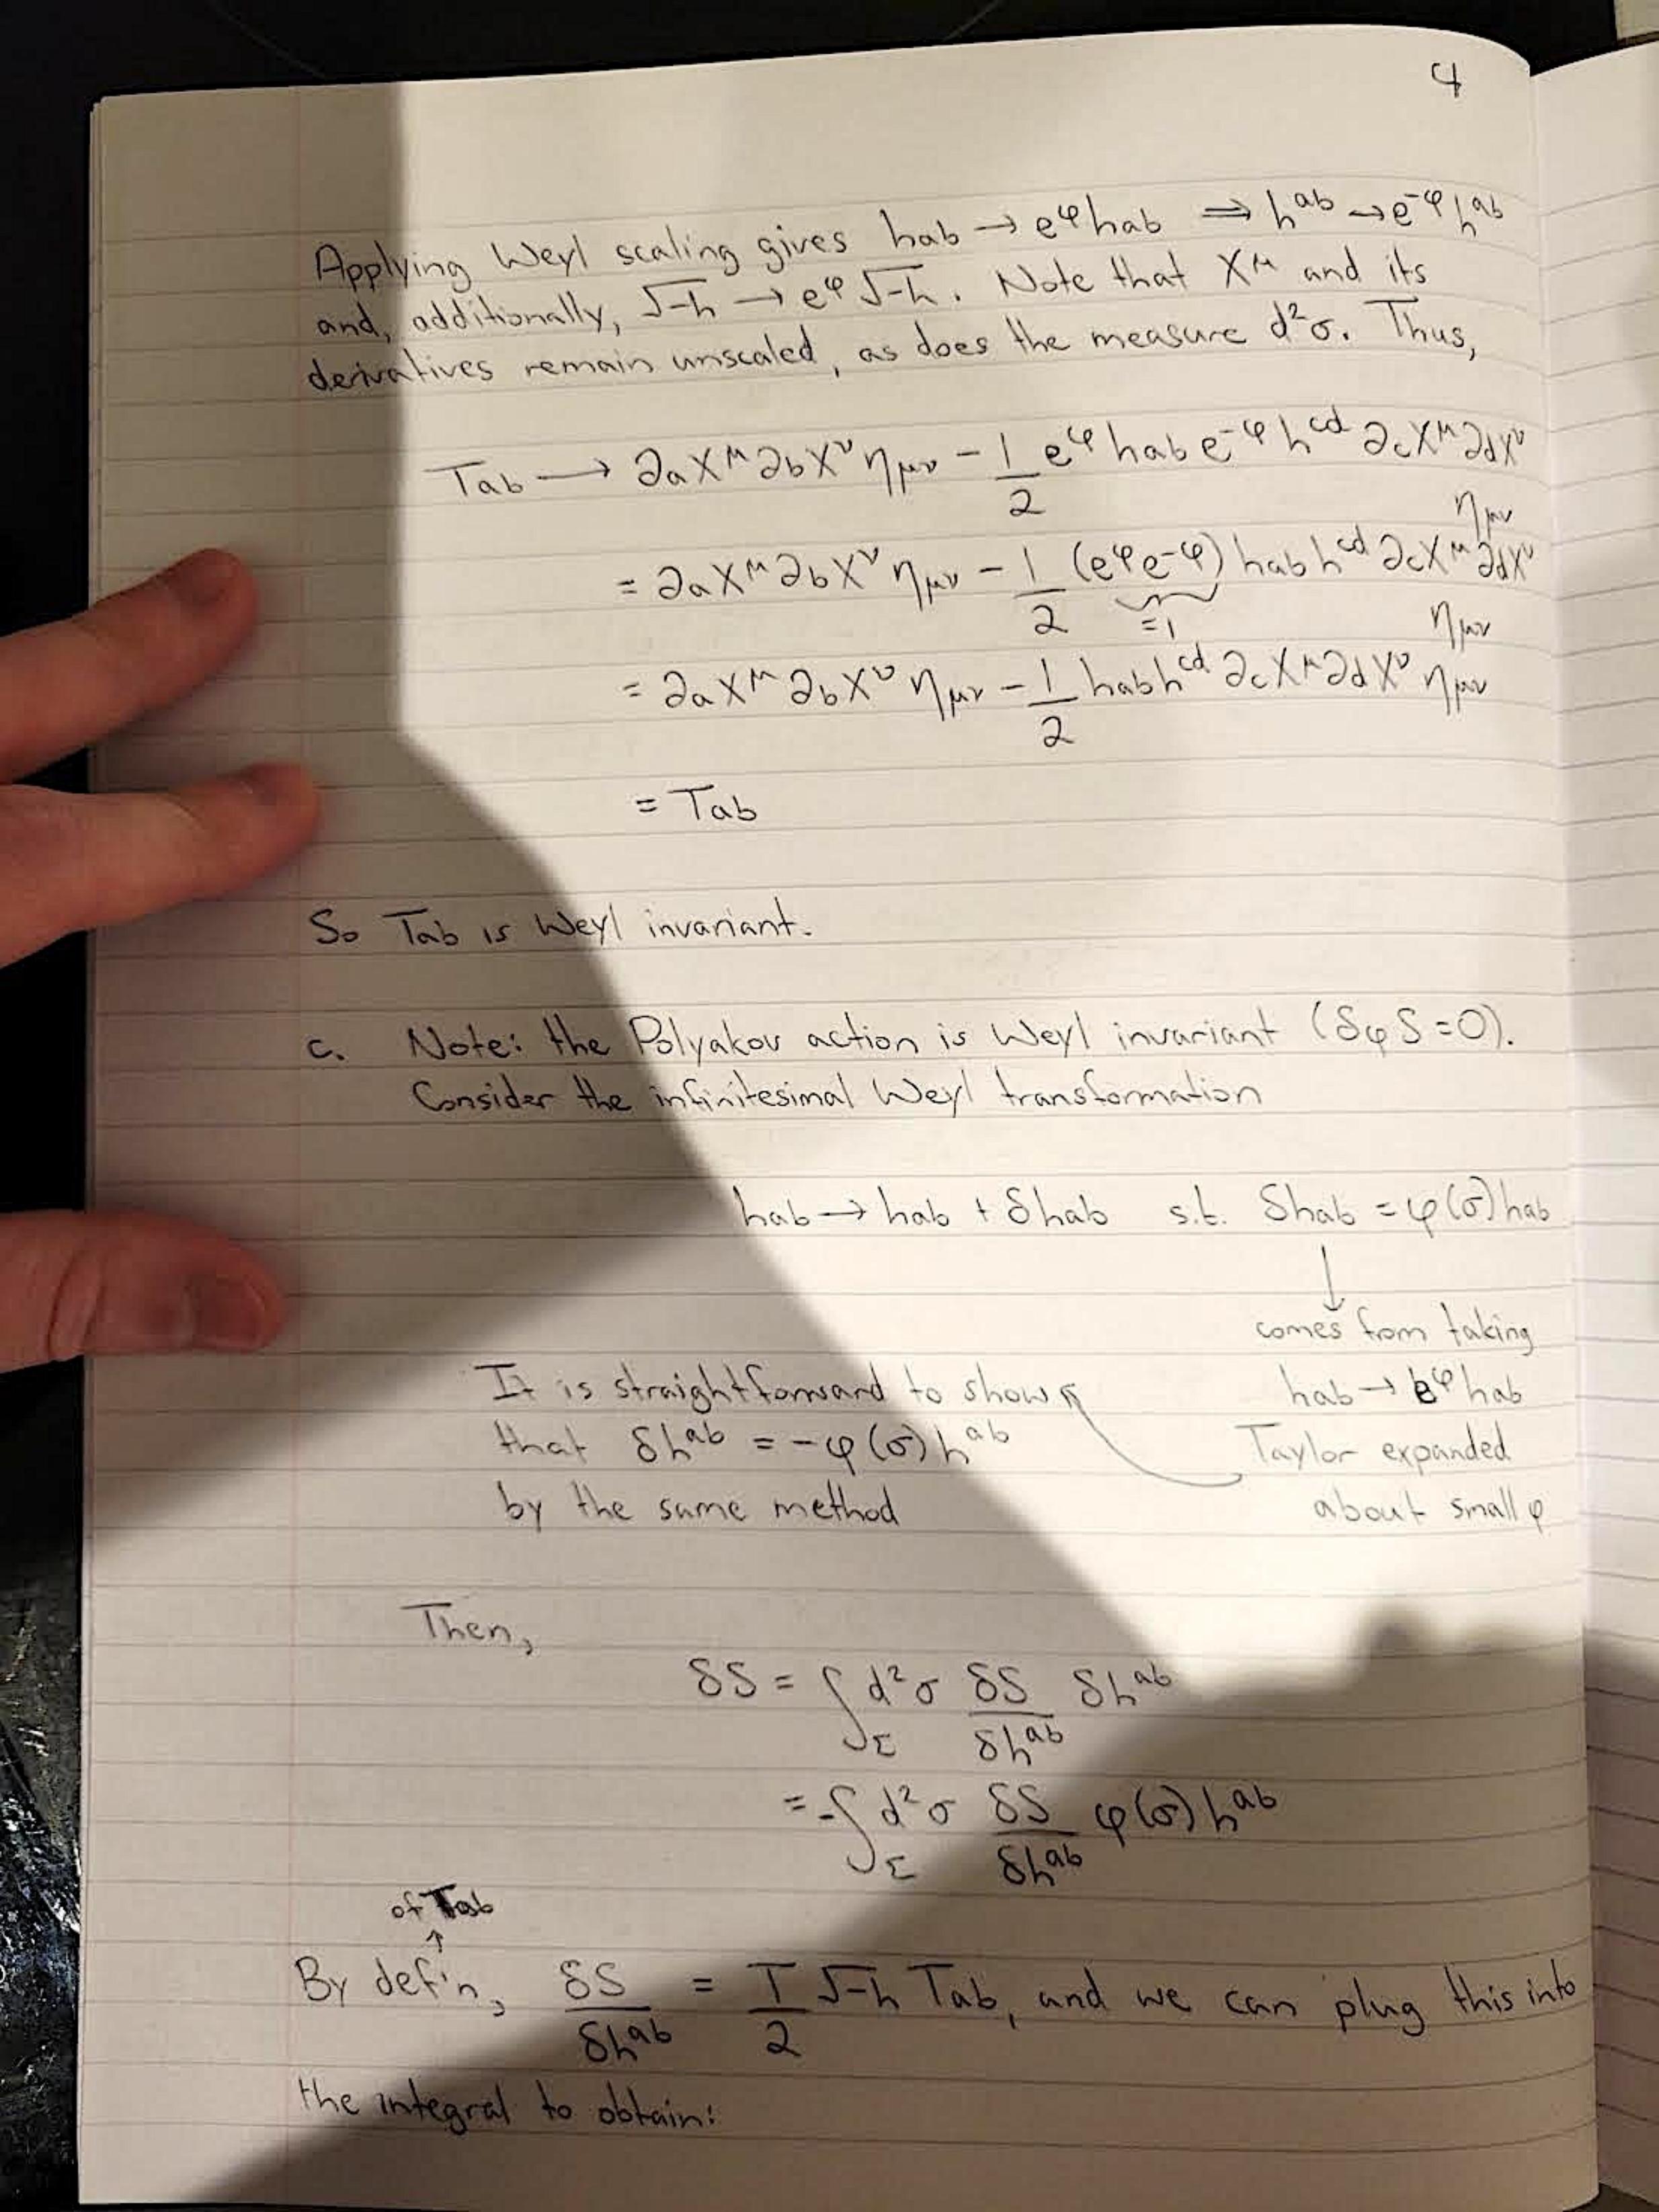 4
Applying Weyl scaling gives hab → e^φ hab ⇒ h^ab → e^-φ h^ab
and, additionally, √-h → e^φ √-h. Note that X^μ and its
derivatives remain unscaled, as does the measure d²σ. Thus,
Tab → ∂aX^μ ∂bX^ν η_μν - 1/2 e^φ hab e^-φ h^cd ∂cX^μ ∂dX^ν η_μν
= ∂aX^μ ∂bX^ν η_μν - 1/2 (e^φ e^-φ) hab h^cd ∂cX^μ ∂dX^ν η_μν
=1
= ∂aX^μ ∂bX^ν η_μν - 1/2 hab h^cd ∂cX^μ ∂dX^ν η_μν
= Tab
So Tab is Weyl invariant.
c. Note: the Polyakov action is Weyl invariant (δφS = 0).
Consider the infinitesimal Weyl transformation
hab → hab + δhab s.t. δhab = φ(σ) hab
↓
comes from taking
hab → e^φ hab
Taylor expanded
about small φ
It is straightforward to show
that δh^ab = -φ(σ) h^ab
by the same method
Then,
δS = ∫_Σ d²σ δS/δh^ab δh^ab
= -∫_Σ d²σ δS/δh^ab φ(σ) h^ab
of Tab
↑
By def'n, δS/δh^ab = T/2 √-h Tab, and we can plug this into
the integral to obtain: